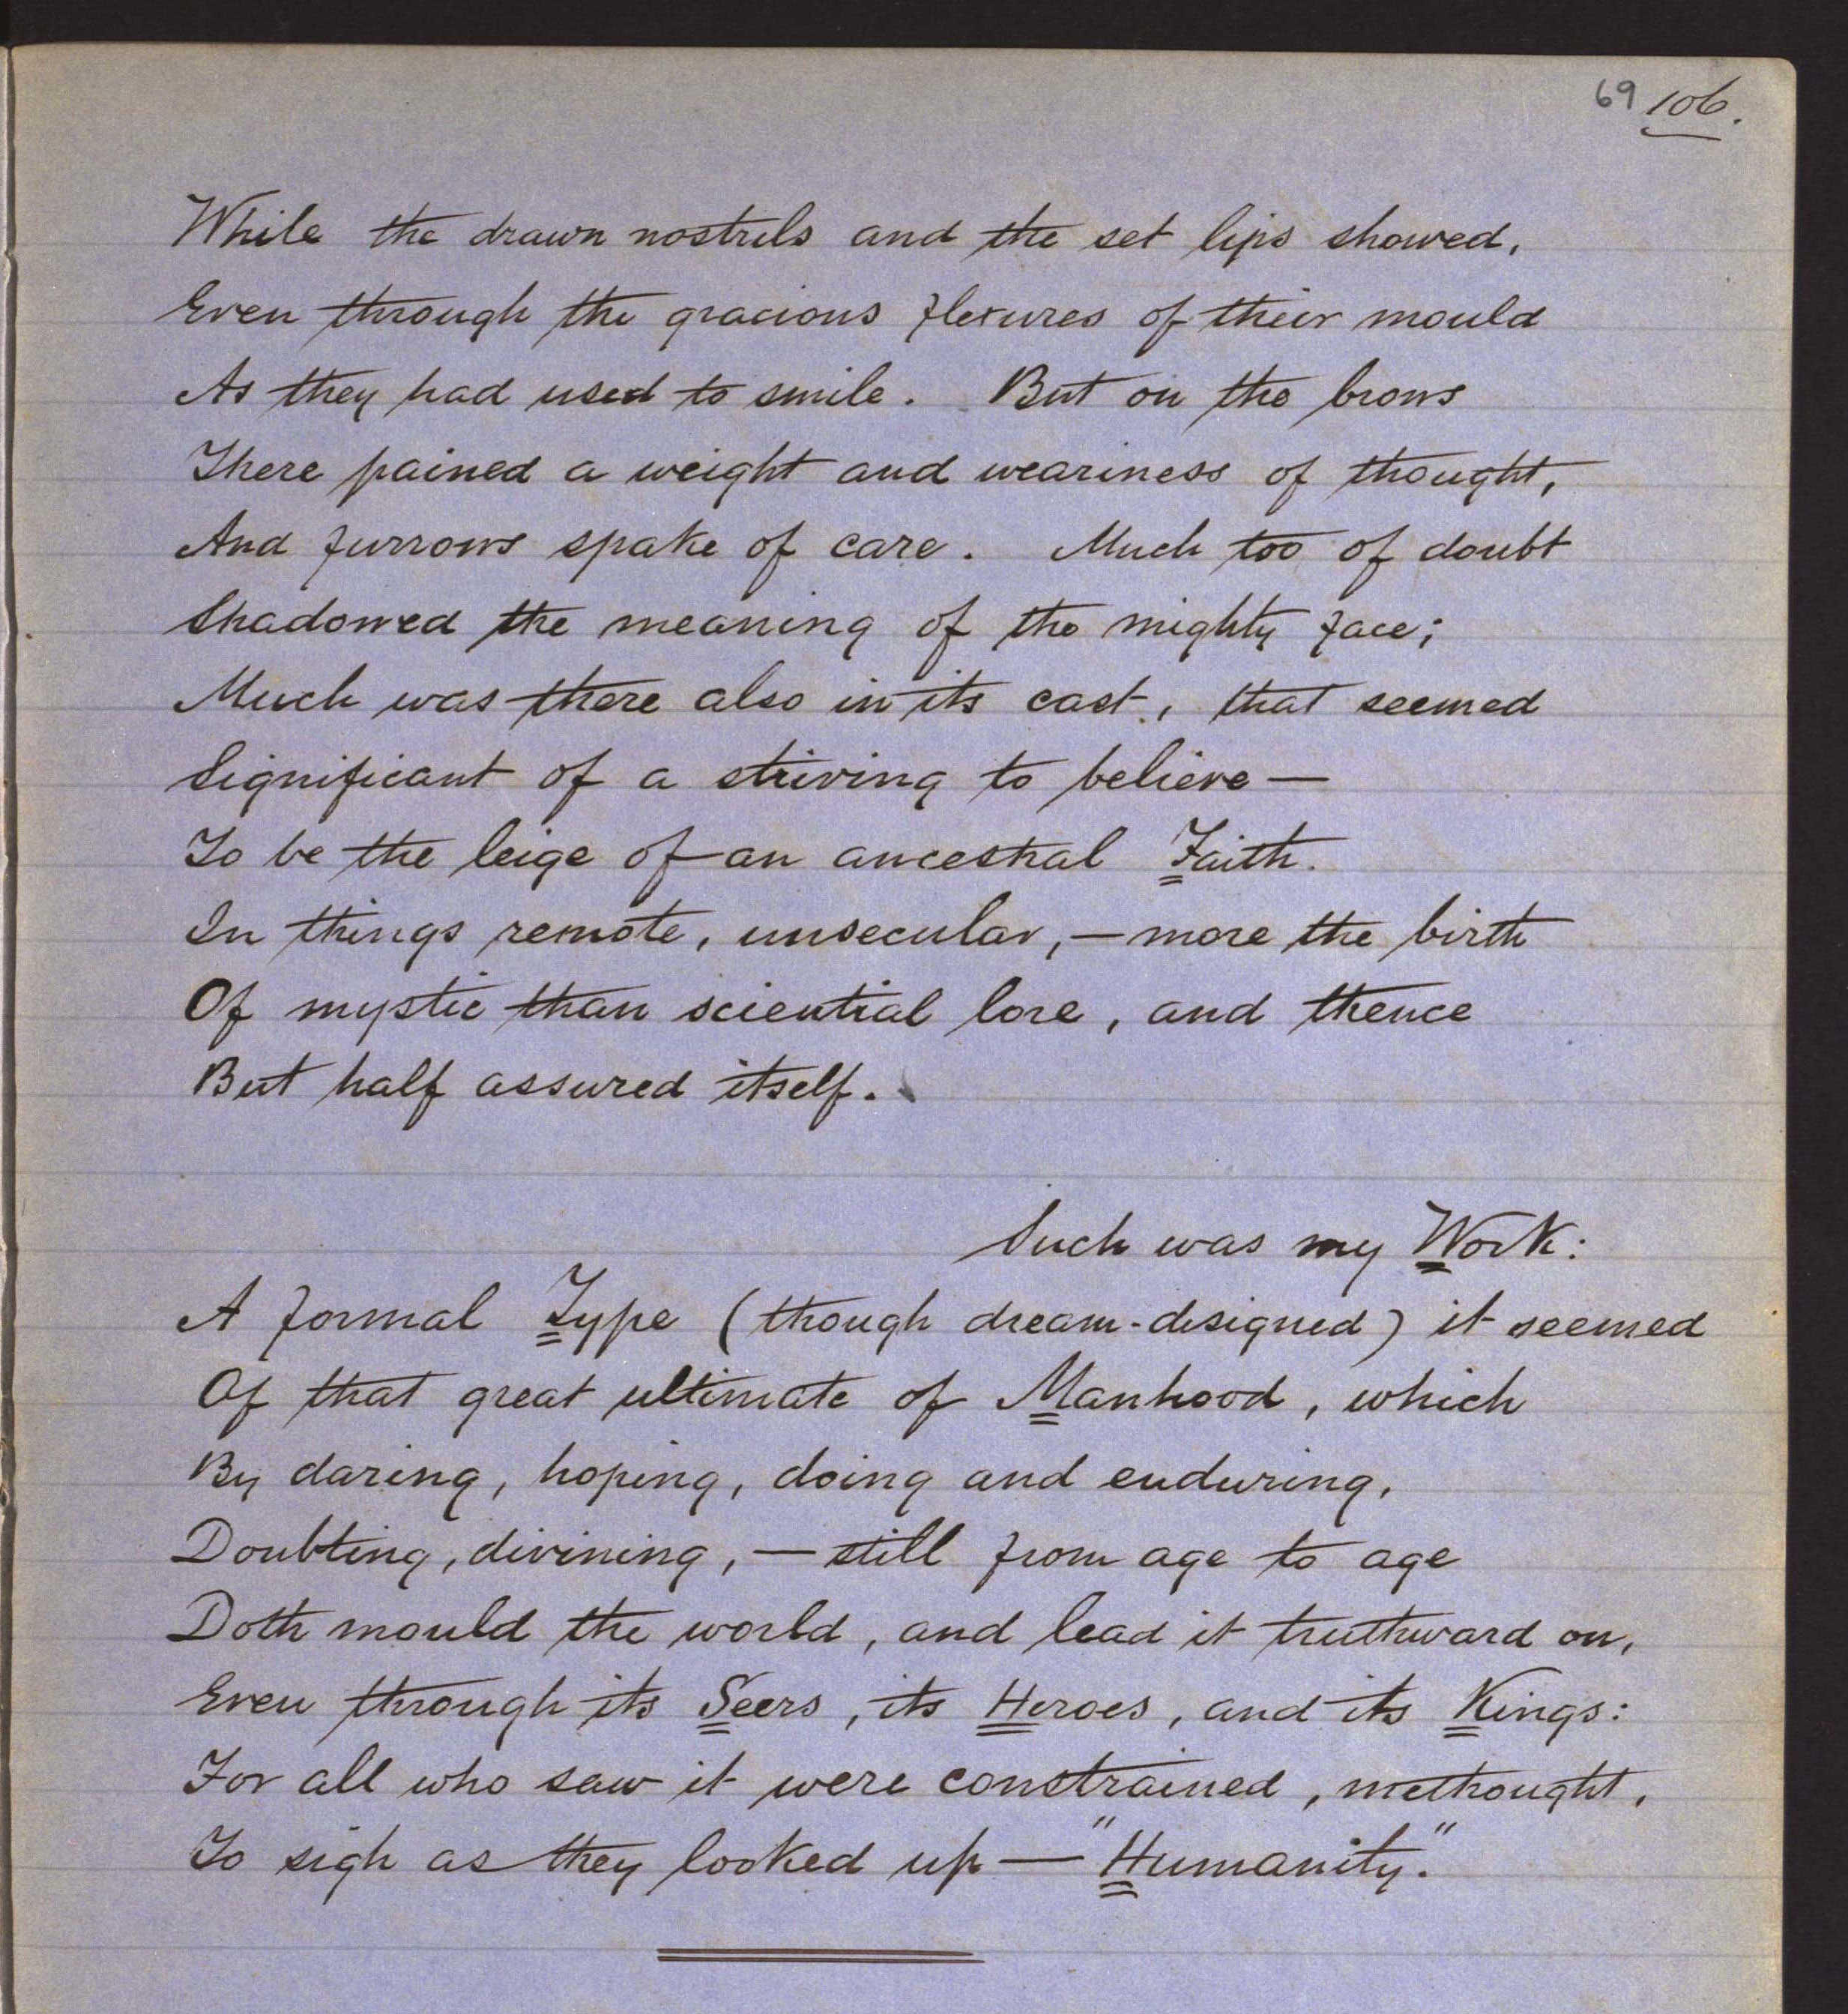 69 106.
While the drawn nostrils and the set lips showed,
Even through the gracious flexures of their mould
As they had used to smile. But on the brows
There pained a weight and weariness of thought,
And furrows spake of care. Much too of doubt
Shadowed the meaning of the mighty face;
Much was there also in its cast, that seemed
Significant of a striving to believe —
To be the leige of an ancestral Faith.
In things remote, unsecular, — more the birth
Of mystic than sciential lore, and thence
But half assured itself.
Such was my Work:
A formal Type (though dream-designed) it seemed
Of that great ultimate of Manhood, which
By daring, hoping, doing and enduring,
Doubting, divining, — still from age to age
Doth mould the world, and lead it truthward on,
Even through its Seers, its Heroes, and its Kings:
For all who saw it were constrained, methought,
To sigh as they looked up — "Humanity."